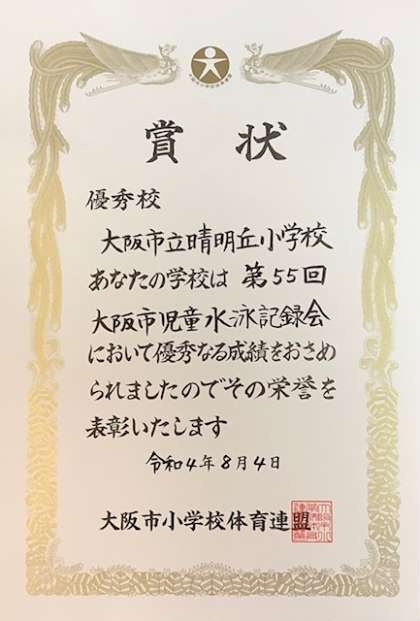 賞状
優秀校
大阪市立晴明丘小学校
あなたの学校は 第55回
大阪市児童水泳記録会
において優秀なる成績をおさめ
られましたのでその栄誉を
表彰いたします
令和4年8月4日
大阪市小学校体育連盟